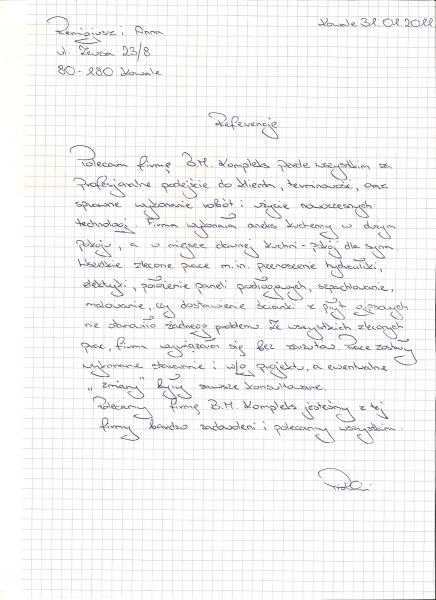 Remigiusz i Anna
Kowale 31.01.2011
ul. Zeusa 23/8
80-180 Kowale
Referencje
Polecam firmę B.M. Kompleks przede wszystkim za
profesjonalne podejście do klienta, terminowość, oraz
sprawne wykonanie robót i użycie nowoczesnych
technologi. Firma wykonała aneks kuchenny w dużym
pokoju, a w miejsce dawnej kuchni - pokój dla syna.
Wszelkie zlecone prace m.in. przenoszenie hydrauliki,
elektryki, położenie paneli podłogowych, szpachlowanie,
malowanie, czy dostawienie ścianki z płyt gipsowych
nie stanowiło żadnego problemu. Ze wszystkich zleconych
prac, firma wywiązała się bez zarzutu. Prace zostały
wykonane starannie i wg projektu, a ewentualne
"zmiany" były zawsze konsultowane.
Polecamy firmę B.M. Kompleks jesteśmy z tej
firmy bardzo zadowoleni i polecamy wszystkim.